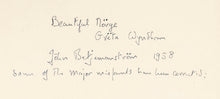 Beautiful Norge
Greta Wyndham
John Betjemanström 1958
Some of the major misprints have been